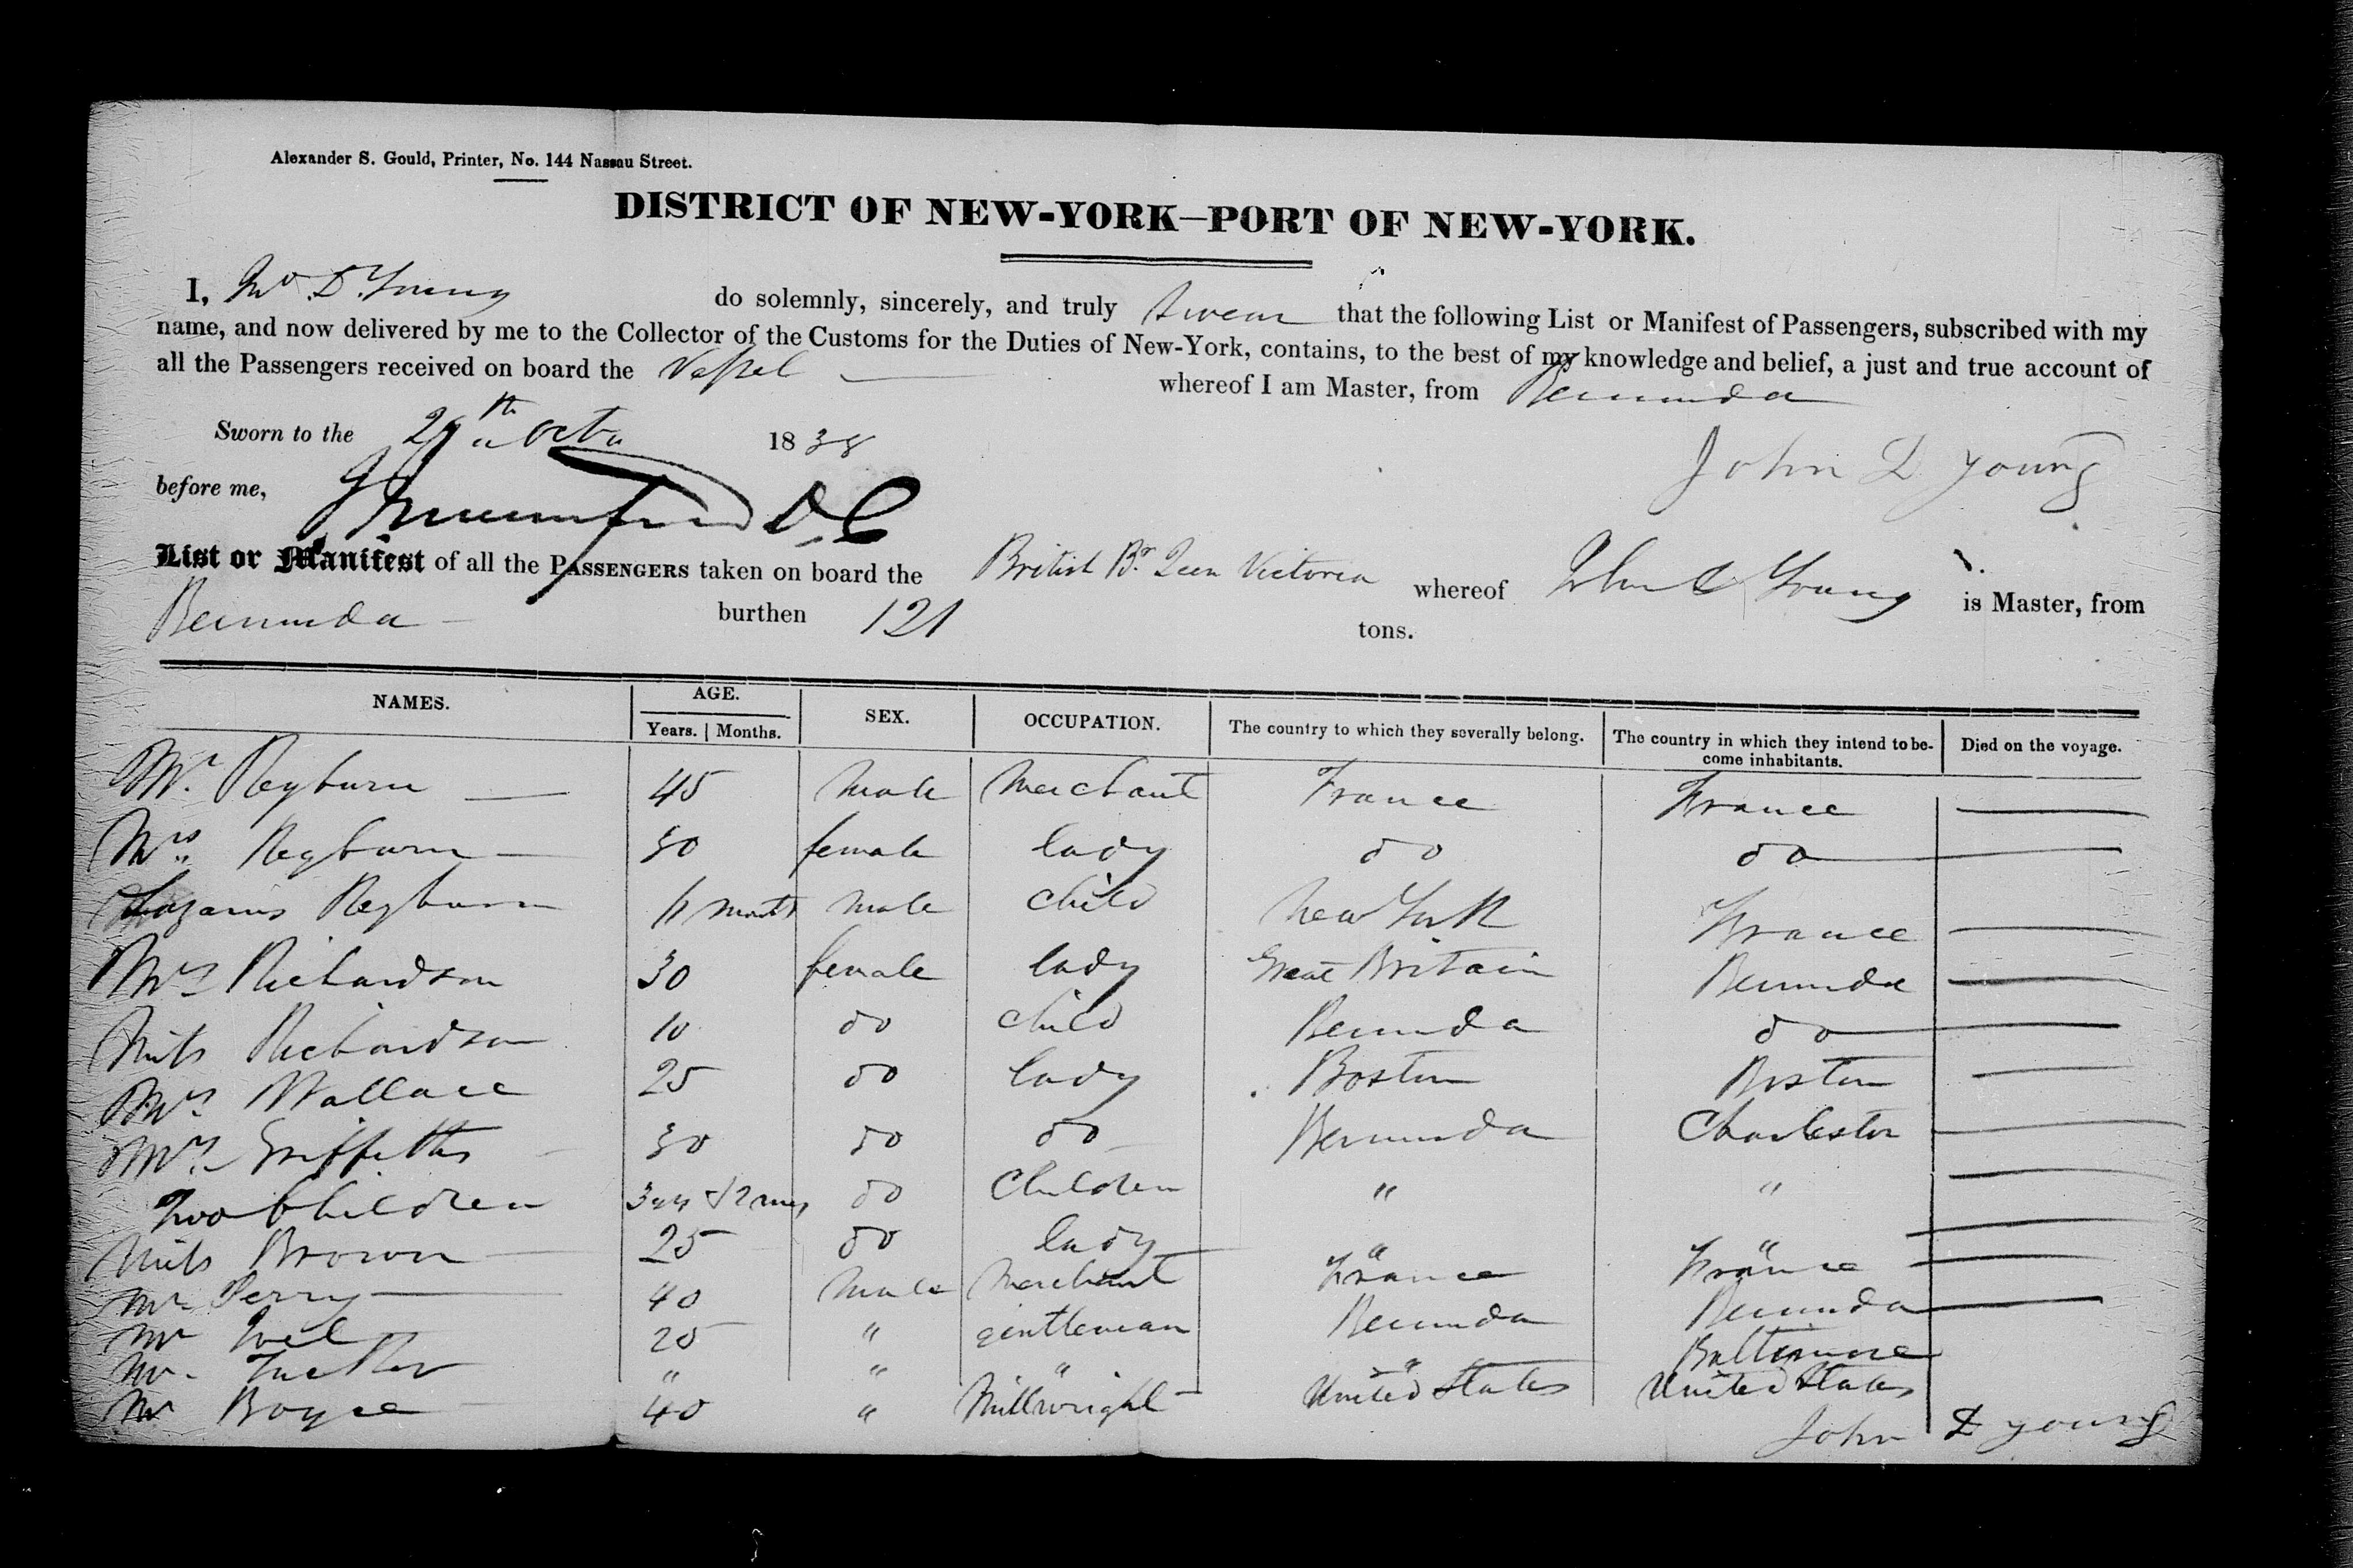 Alexander S. Gould, Printer, No. 144 Nassau Street.
DISTRICT OF NEW-YORK—PORT OF NEW-YORK.
I, Jno. D. Young do solemnly, sincerely, and truly swear that the following List or Manifest of Passengers, subscribed with my
name, and now delivered by me to the Collector of the Customs for the Duties of New-York, contains, to the best of my knowledge and belief, a just and true account of
all the Passengers received on board the Vessel — whereof I am Master, from Bermuda
Sworn to the 29th Octo 1838
John D Young
before me, D.C
List or Manifest of all the PASSENGERS taken on board the British Br. Queen Victoria whereof John D Young is Master, from
Bermuda — burthen 121 tons.
NAMES. AGE. Years. | Months. SEX. OCCUPATION. The country to which they severally belong. The country in which they intend to become inhabitants. Died on the voyage.
Mr. Reyburn — 45 male Merchant France France —
Mrs. Reyburn — 30 female lady do do —
Reyburn 11 months male child New York France —
Mrs Richardson 30 female lady Great Britain Bermuda —
Miss Richardson 10 do child Bermuda do —
Mrs Wallace 25 do lady Boston Boston —
Mrs Griffiths 30 do do Bermuda Charleston —
Two Children 3 yrs & 2 mos do Children " " —
Miss Brown — 25 do lady " " —
Mr Perry — 40 male Merchant France France —
Mr 25 " gentleman Bermuda Bermuda —
Mr. Tucker " " " " Baltimore
Mr Boyce — 40 " Millwright — United States United States
John D Young